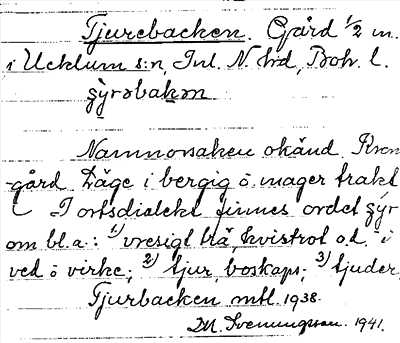 Tjurebacken. Gård 1/2 m.
i Ucklum s:n, Inl. N. hrd, Boh. l.
Namnorsaken okänd. Kron-
gård Läge i bergig o. mager trakt
I ortsdialekt finnes ordet
om bl.a.: 1) vresigt trä, kvistrot o.d. i
ved o virke; 2) tjur, boskaps; 3) tjuder.
Tjurbacken mtl. 1938.
1941.